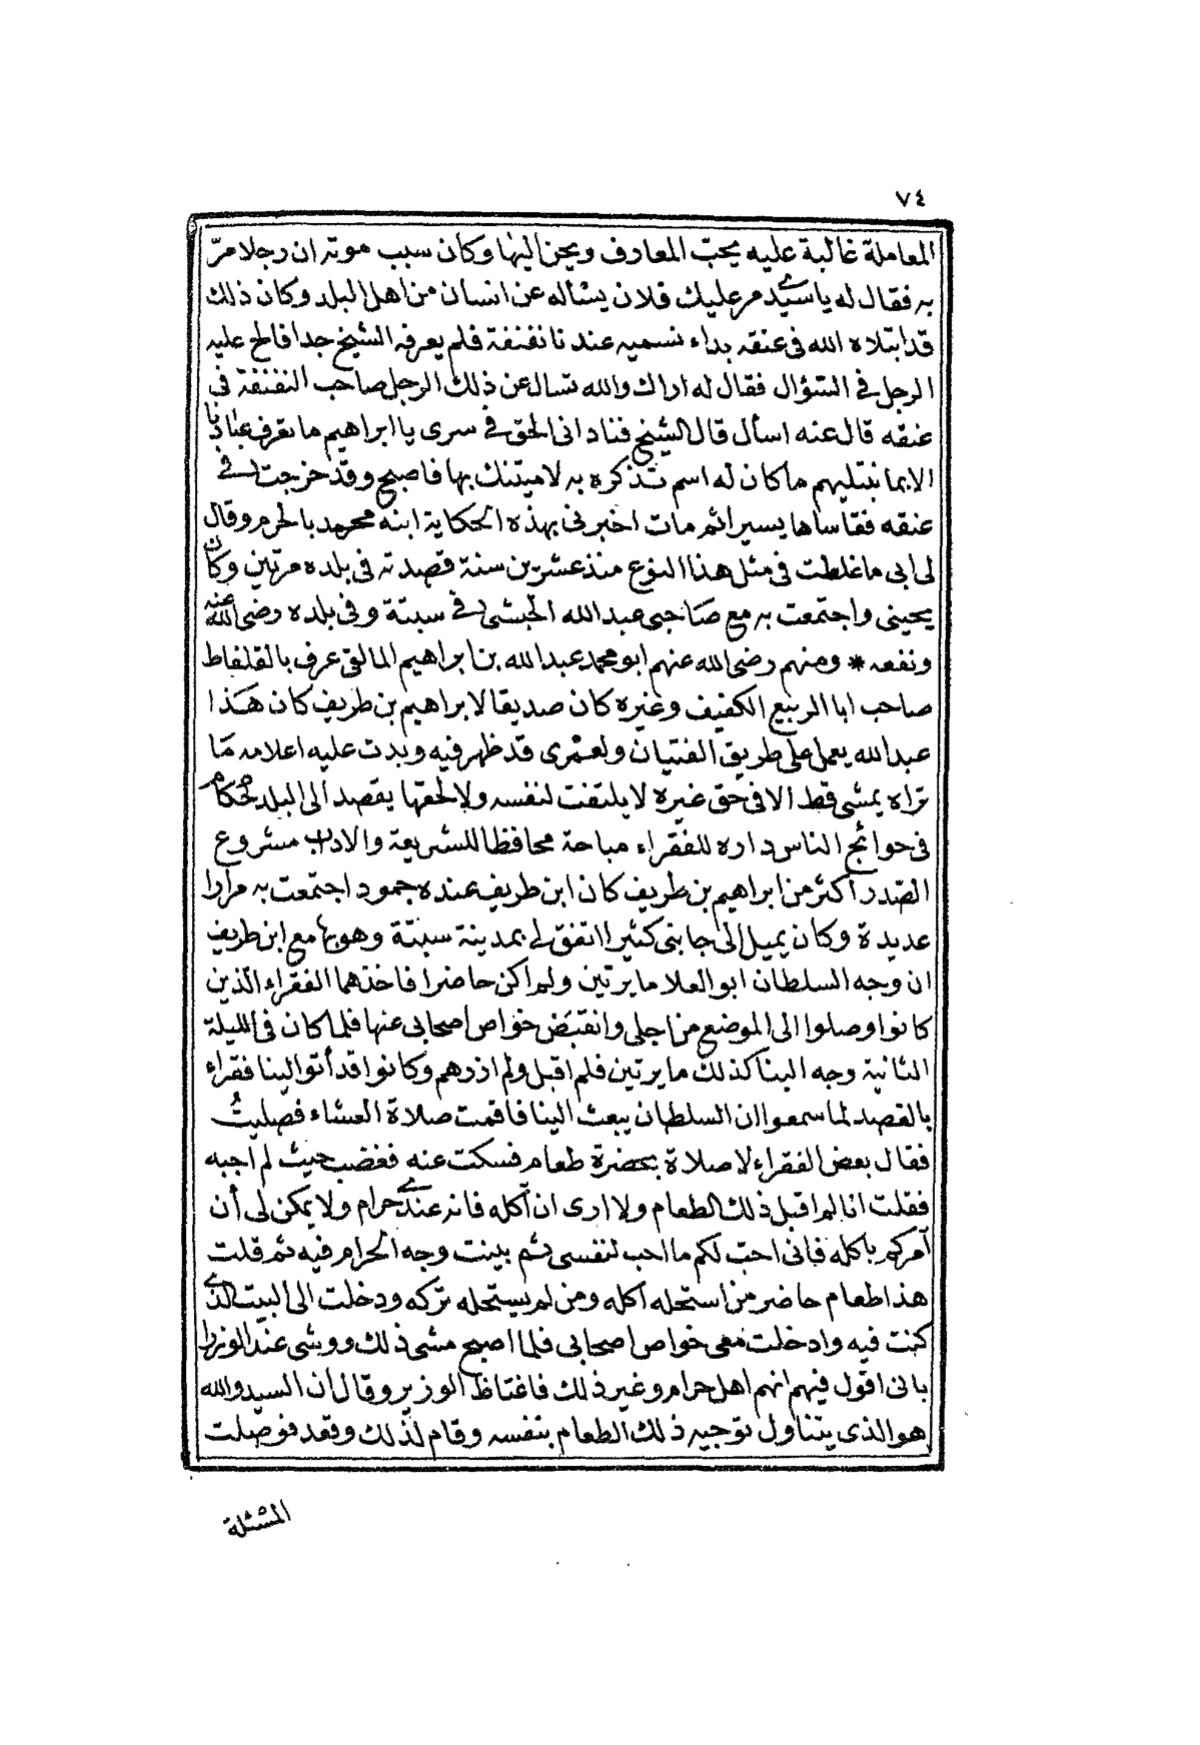 ٧٤
المعاملة غالبة عليه يحبّ المعارف ويحن اليها وكان سبب موته ان رجلا مرّ
به فقال له يا سيدى مر عليك فلان يسأله عن انسان من اهل البلد وكان ذلك
قد ابتلاه الله فى عنقه بداء نسميه عندنا نفنفة فلم يعرفه الشيخ جدا فالح عليه
الرجل فى السّؤال فقال له اراك والله تسال عن ذلك الرجل صاحب النفنفة فى
عنقه قال عنه اسأل قال الشيخ فنادانى الحق فى سرى يا ابراهيم ما تعرف عبادنا
الا بما نبتليهم ما كان له اسم تذكره به لاميتنك بها فاصبح وقد خرجت فى
عنقه فقاساها يسيرا ثم مات اخبرنى بهذه الحكاية ابنه محمد بالحرم وقال
لى ابى ما غلطت فى مثل هذا النوع منذ عشرين سنة قصدته فى بلده مرتين وكان
يحبنى واجتمعت به مع صاحبى عبد الله الحبشى فى سبتة وفى بلده رضى الله عنه
ونفعه * ومنهم رضى الله عنهم ابو محمد عبد الله بن ابراهيم المالقى عرف بالقلفاط
صاحب ابا الربيع الكفيف وغيره كان صديقا لابراهيم بن طريف كان هذا
عبد الله يعمل على طريق الفتيان ولعمرى قد ظهر فيه وبدت عليه اعلامه ما
تراه يمشى قط الا فى حق غيره لا يلتفت لنفسه ولا لحقها يقصد الى البلد حكام
فى حوائج الناس داره للفقراء مباحة محافظا للشريعة والادب مشروع
الصّدر اكثر من ابراهيم بن طريف كان ابن طريف عنده جمود اجتمعت به مرارا
عديدة وكان يميل الى جانبى كثيرا اتفق لى بمدينة سبتة وهو بها مع ابن طريف
ان وجه السلطان ابو العلا مايرتين ولم اكن حاضرا فاخذهما الفقراء الذين
كانوا وصلوا الى الموضع من اجلى وانقبض خواص اصحابى عنها فلما كان فى الليلة
الثانية وجه الينا كذلك مايرتين فلم اقبل ولم اردهم وكانوا قد أتوا الينا فقراء
بالقصد لما سمعوا ان السلطان يبعث الينا فاقمت صلاة العشاء فصليتُ
فقال بعض الفقراء لا صلاة بحضرة طعام فسكت عنه فغضب حيث لم اجبه
فقلت انا لم اقبل ذلك الطعام ولا ارى ان آكله فانه عندى حرام ولا يمكن لى أن
آمركم باكله فانى احب لكم ما احب لنفسى ثم بينت وجه الحرام فيه ثم قلت
هذا طعام حاضر من استحله اكله ومن لم يستحله تركه ودخلت الى البيت الذى
كنت فيه وادخلت معى خواص اصحابى فلما اصبح مشى ذلك ووشى عند الوزراء
بانى اقول فيهم انهم اهل حرام وغير ذلك فاغتاظ الوزير وقال ان السيد والله
هو الذى يتناول توجيه ذلك الطعام بنفسه وقام لذلك وقعد فوصلت
المسئلة